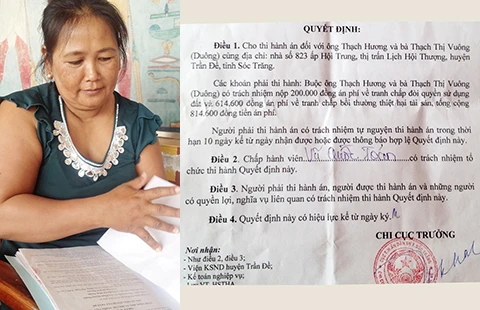 QUYẾT ĐỊNH:
Điều 1. Cho thi hành án đối với ông Thạch Hương và bà Thạch Thị Vuông
(Duông) cùng địa chỉ: nhà số 823 ấp Hội Trung, thị trấn Lịch Hội Thượng, huyện
Trần Đề, tỉnh Sóc Trăng.
Các khoản phải thi hành: Buộc ông Thạch Hương và bà Thạch Thị Vuông
(Duông) có trách nhiệm nộp 200.000 đồng án phí về tranh chấp đòi quyền sử dụng
đất và 614.600 đồng án phí về tranh chấp bồi thường thiệt hại tài sản, tổng cộng
814.600 đồng tiền án phí.
Người phải thi hành án có trách nhiệm tự nguyện thi hành án trong thời
hạn 10 ngày kể từ ngày nhận được hoặc được thông báo hợp lệ Quyết định này.
Điều 2. Chấp hành viên Vũ Quốc Toản có trách nhiệm tổ
chức thi hành Quyết định này.
Điều 3. Người phải thi hành án, người được thi hành án và những người
có quyền lợi, nghĩa vụ liên quan có trách nhiệm thi hành Quyết định này.
Điều 4. Quyết định này có hiệu lực kể từ ngày ký./.
CHI CỤC TRƯỞNG
Nơi nhận:
- Như điều 2, điều 3;
- Viện KSND huyện Trần Đề;
- Kế toán nghiệp vụ;
- Lưu VT, HSTHA.